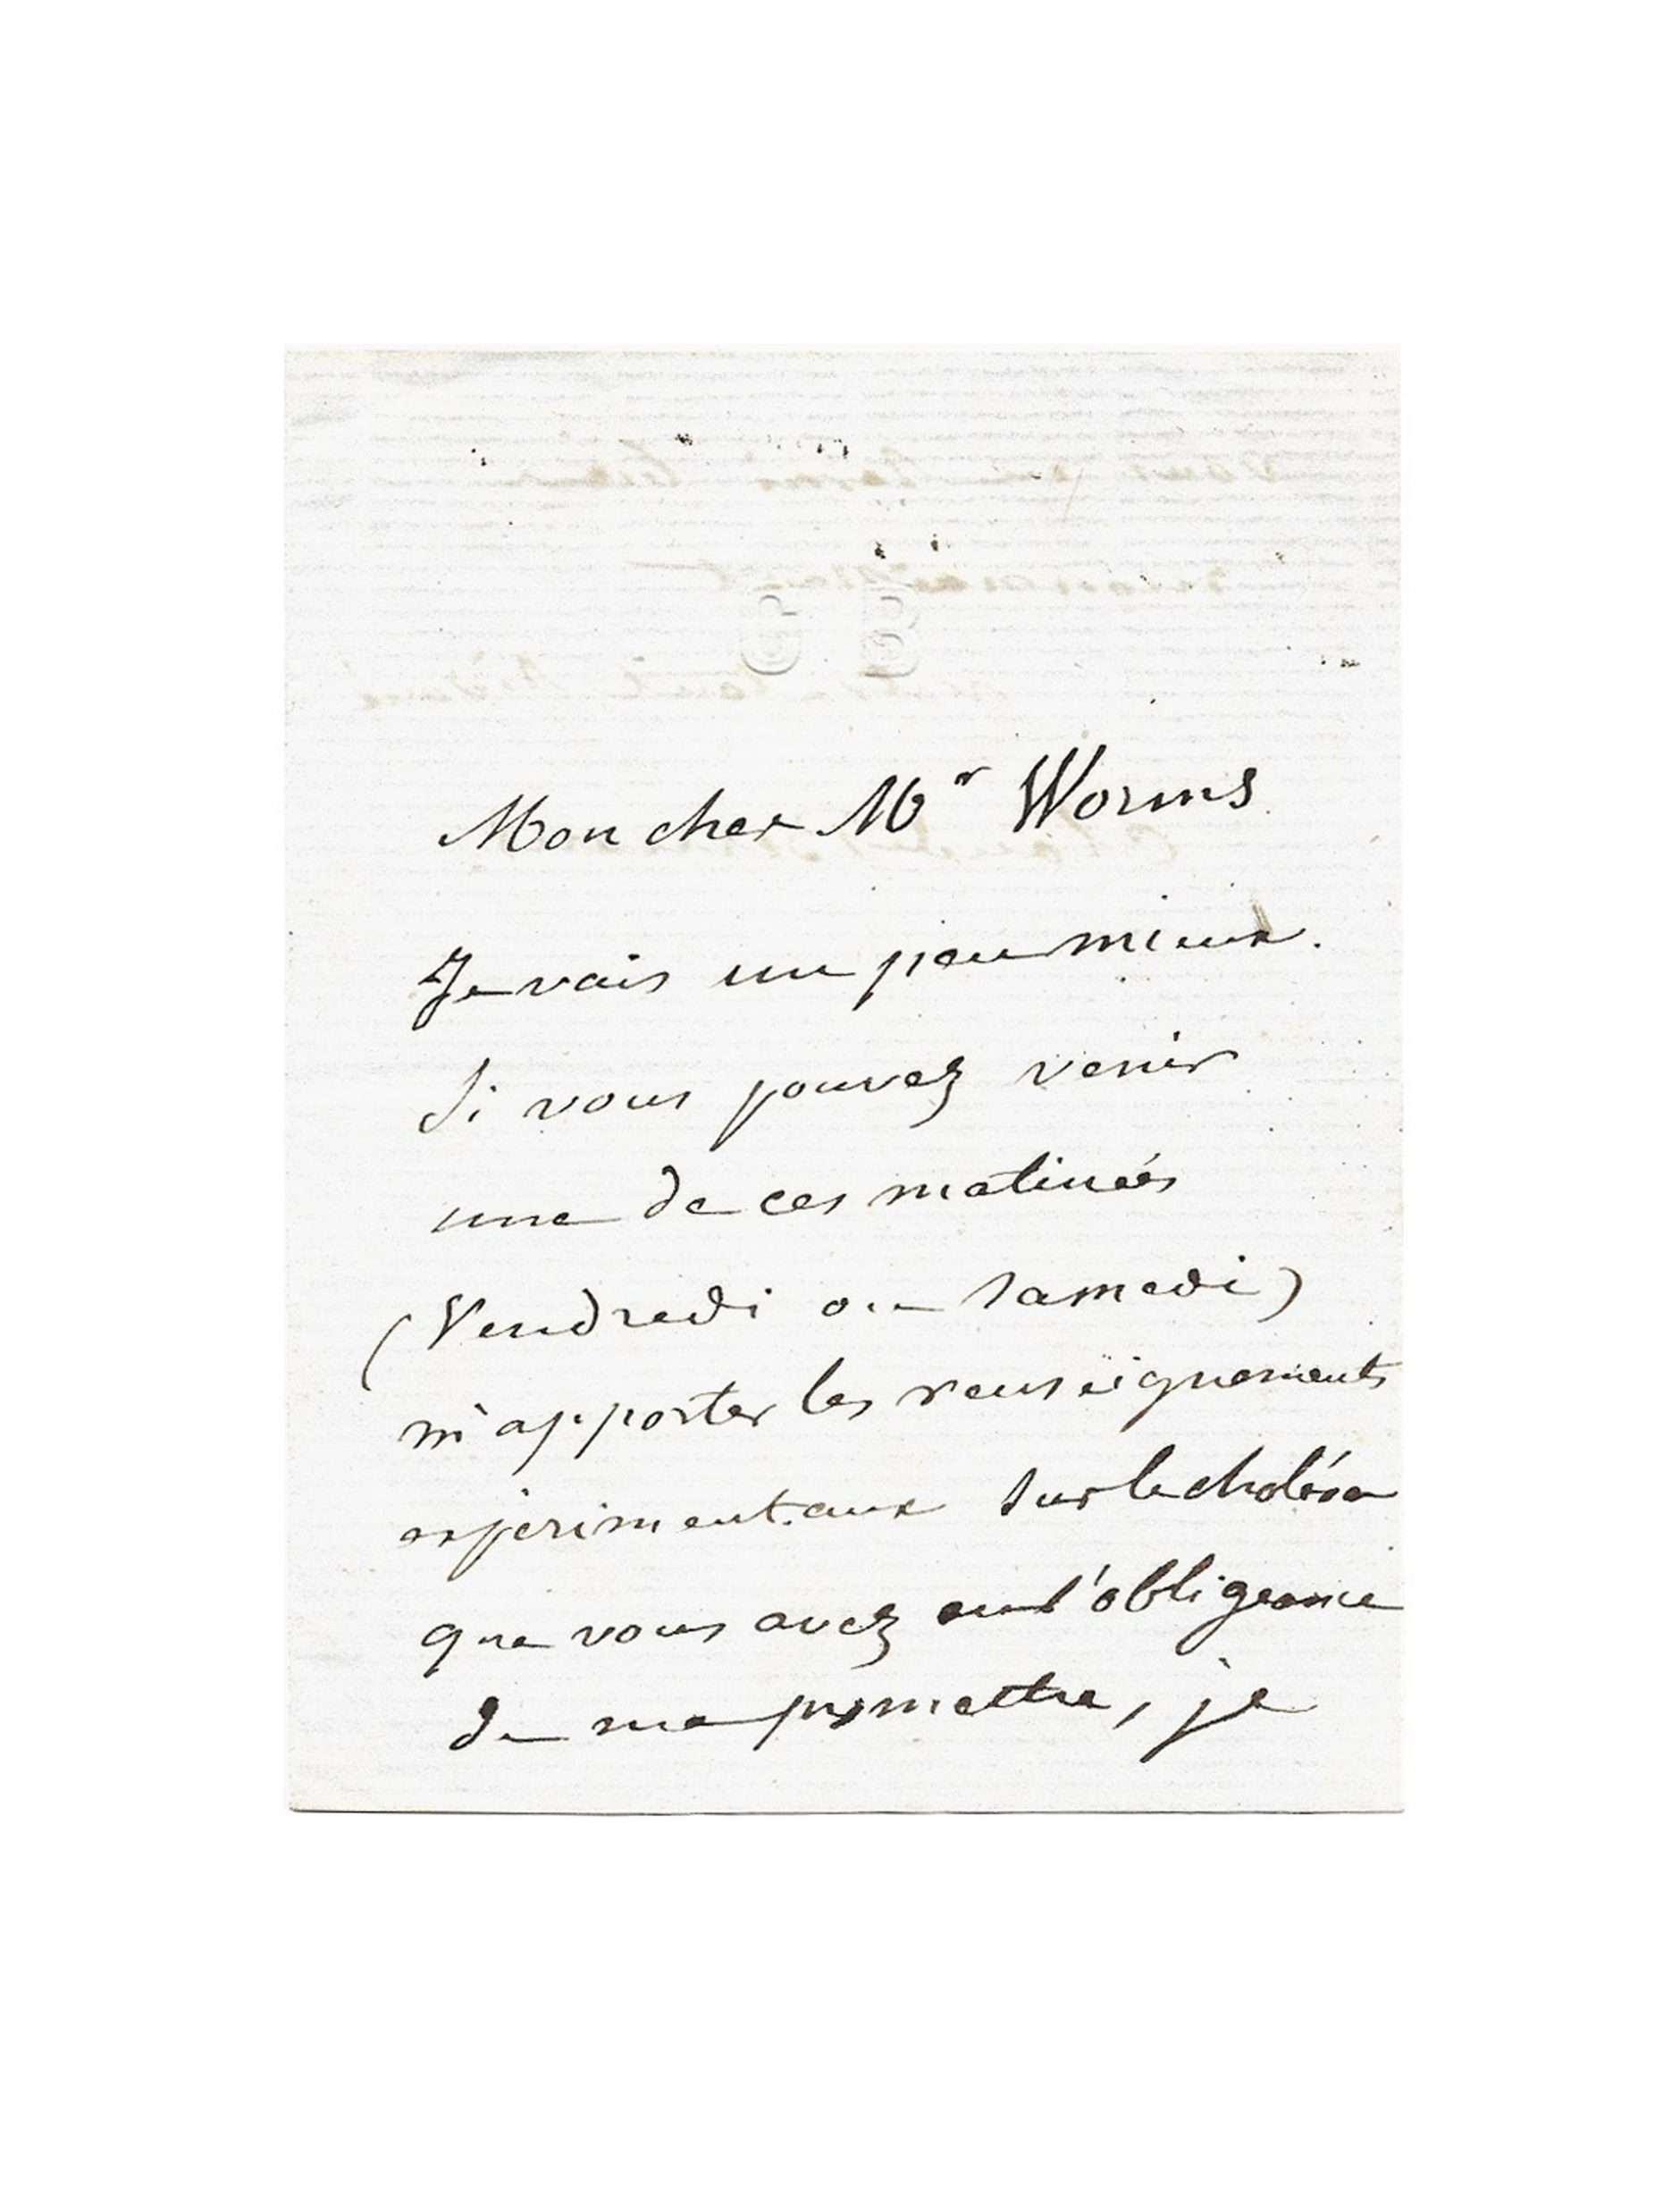 C B
Mon cher Mr Worms
Je vais un peu mieux.
Si vous pouvez venir
une de ces matinées
(Vendredi ou Samedi)
m'apporter les renseignements
expérimentaux sur le choléra
que vous avez eu l'obligeance
de me promettre, je